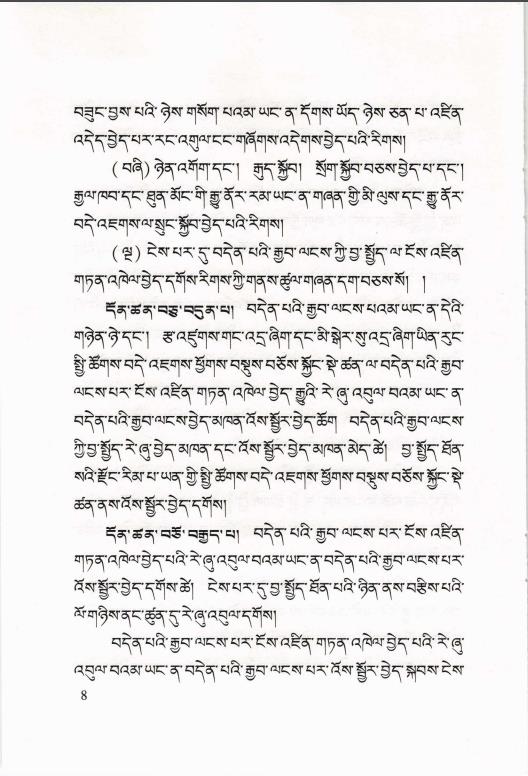 བཟུང་བྱས་པའི་ཉེས་གསོག་པའམ་ཡང་ན་དོགས་ཡོད་ཉེས་ཅན་པ་འཛིན་
འདེད་བྱེད་པར་རང་འགུལ་ངང་གཞོགས་འདེགས་བྱེད་པའི་རིགས།
(བཞི) ཉེན་འགོག་དང་། རྒུད་སྐྱོབ། སྲོག་སྐྱོབ་བཅས་བྱེད་པ་དང་།
རྒྱལ་ཁབ་དང་ཐུན་མོང་གི་རྒྱུ་ནོར་རམ་ཡང་ན་གཞན་གྱི་མི་ལུས་དང་རྒྱུ་ནོར་
བདེ་འཇགས་ལ་སྲུང་སྐྱོབ་བྱེད་པའི་རིགས།
(ལྔ) ངེས་པར་དུ་བདེན་པའི་རྒྱབ་ལངས་ཀྱི་བྱ་སྤྱོད་ལ་ངོས་འཛིན་
གཏན་འཁེལ་བྱེད་དགོས་རིགས་ཀྱི་གནས་ཚུལ་གཞན་དག་བཅས་སོ། །
དོན་ཚན་བཅུ་བདུན་པ། བདེན་པའི་རྒྱབ་ལངས་པའམ་ཡང་ན་དེའི་
གཉེན་ཉེ་དང་། རྩ་འཛུགས་གང་འདྲ་ཞིག་དང་མི་སྒེར་སུ་འདྲ་ཞིག་ཡིན་རུང་
སྤྱི་ཚོགས་བདེ་འཇགས་ཕྱོགས་བསྡུས་བཅོས་སྐྱོང་སྡེ་ཚན་ལ་བདེན་པའི་རྒྱབ་
ལངས་པར་ངོས་འཛིན་གཏན་འཁེལ་བྱེད་རྒྱུའི་རེ་ཞུ་འབུལ་བའམ་ཡང་ན་
བདེན་པའི་རྒྱབ་ལངས་བྱེད་མཁན་འོས་སྦྱོར་བྱེད་ཆོག བདེན་པའི་རྒྱབ་ལངས་
ཀྱི་བྱ་སྤྱོད་རེ་ཞུ་བྱེད་མཁན་དང་འོས་སྦྱོར་བྱེད་མཁན་མེད་ཚེ། བྱ་སྤྱོད་ཐོན་
སའི་རྫོང་རིམ་པ་ཡན་གྱི་སྤྱི་ཚོགས་བདེ་འཇགས་ཕྱོགས་བསྡུས་བཅོས་སྐྱོང་སྡེ་
ཚན་ནས་འོས་སྦྱོར་བྱེད་དགོས།
དོན་ཚན་བཅོ་བརྒྱད་པ། བདེན་པའི་རྒྱབ་ལངས་པར་ངོས་འཛིན་
གཏན་འཁེལ་བྱེད་པའི་རེ་ཞུ་འབུལ་བའམ་ཡང་ན་བདེན་པའི་རྒྱབ་ལངས་པར་
འོས་སྦྱོར་བྱེད་དགོས་ཚེ། ངེས་པར་དུ་བྱ་སྤྱོད་ཐོན་པའི་ཉིན་ནས་བརྩིས་པའི་
ལོ་གཉིས་ནང་ཚུན་དུ་རེ་ཞུ་འབུལ་དགོས།
བདེན་པའི་རྒྱབ་ལངས་པར་ངོས་འཛིན་གཏན་འཁེལ་བྱེད་པའི་རེ་ཞུ་
འབུལ་བའམ་ཡང་ན་བདེན་པའི་རྒྱབ་ལངས་པར་འོས་སྦྱོར་བྱེད་སྐབས་ངེས་
8